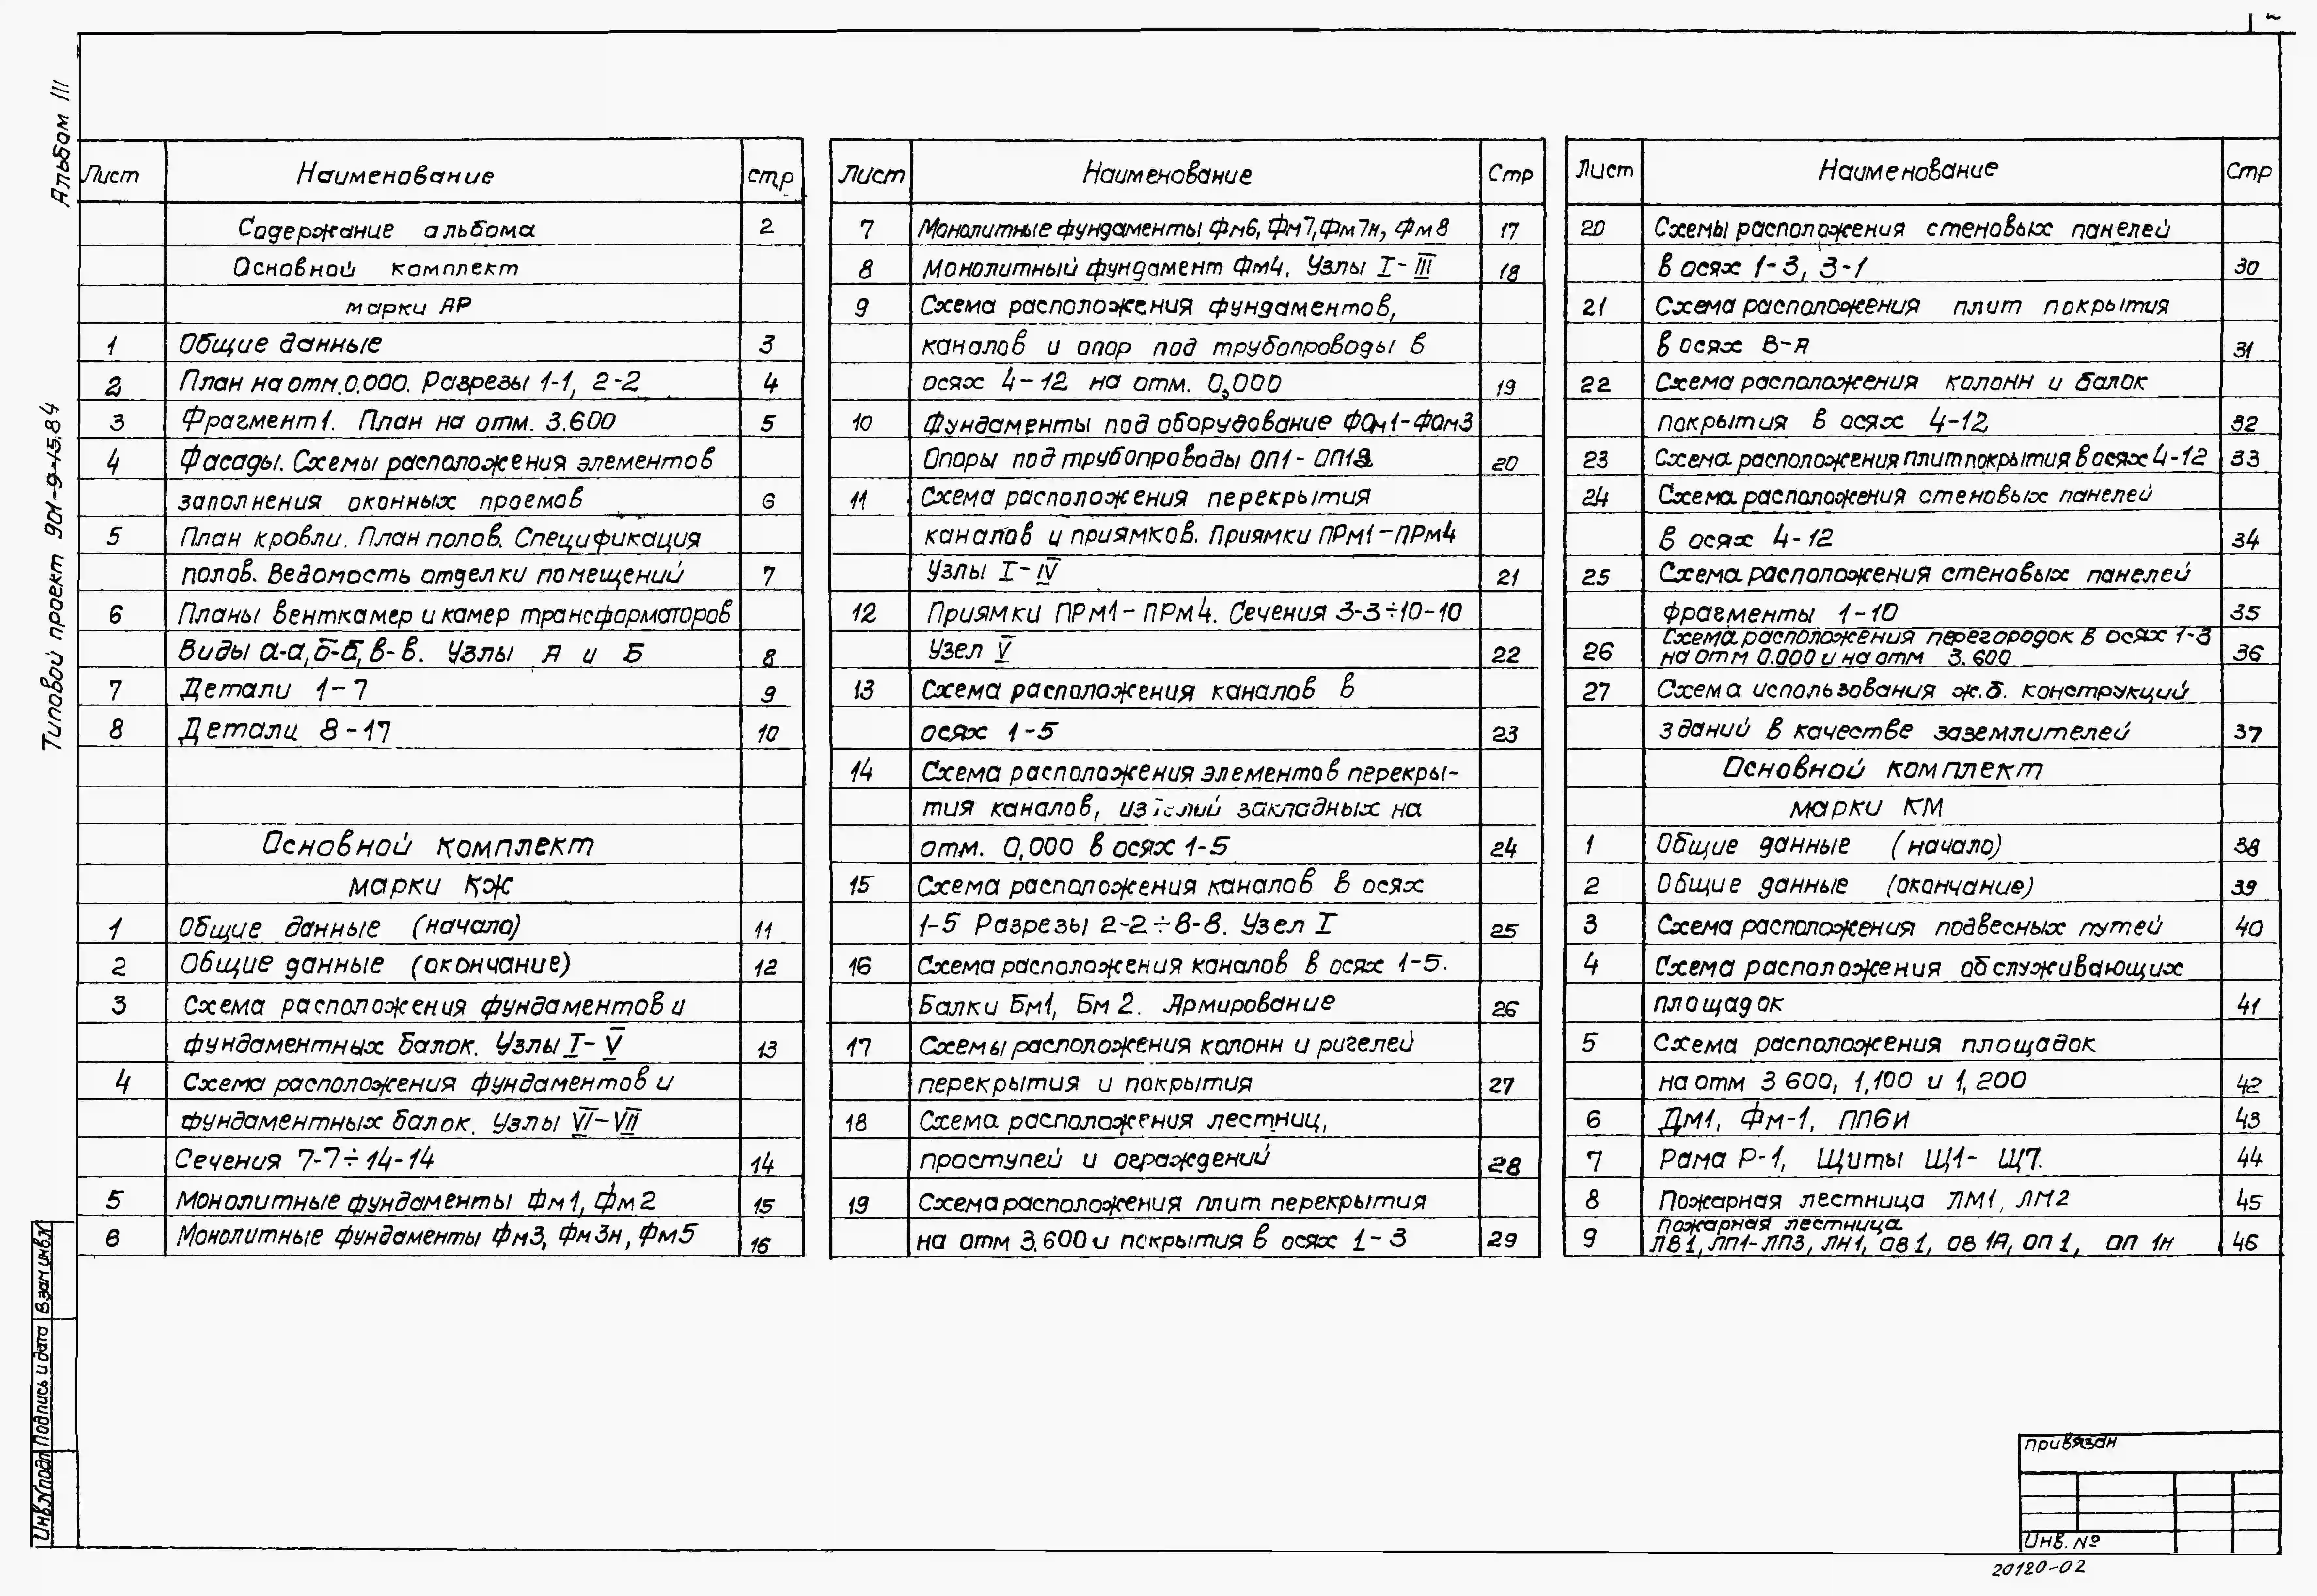 2
Альбом III
Типовой проект 901-9-15.84
Лист Наименование стр
Содержание альбома 2
Основной комплект
марки АР
1 Общие данные 3
2 План на отм. 0.000. Разрезы 1-1, 2-2 4
3 Фрагмент 1. План на отм. 3.600 5
4 Фасады. Схемы расположения элементов
заполнения оконных проемов 6
5 План кровли. План полов. Спецификация
полов. Ведомость отделки помещений 7
6 Планы венткамер и камер трансформаторов
Виды а-а, б-б, в-в. Узлы А и Б 8
7 Детали 1-7 9
8 Детали 8-17 10
Основной комплект
марки КЖ
1 Общие данные (начало) 11
2 Общие данные (окончание) 12
3 Схема расположения фундаментов и
фундаментных балок. Узлы I-V 13
4 Схема расположения фундаментов и
фундаментных балок. Узлы VI-VII
Сечения 7-7÷14-14 14
5 Монолитные фундаменты Фм1, Фм2 15
6 Монолитные фундаменты Фм3, Фм3н, Фм5 16
Лист Наименование Стр
7 Монолитные фундаменты Фм6, Фм7, Фм7н, Фм8 17
8 Монолитный фундамент Фм4, Узлы I-III 18
9 Схема расположения фундаментов,
каналов и опор под трубопроводы в
осях 4-12 на отм. 0,000 19
10 Фундаменты под оборудование ФОм1-ФОм3
Опоры под трубопроводы ОП1-ОП12 20
11 Схема расположения перекрытия
каналов и приямков. Приямки ПРм1-ПРм4
Узлы I-IV 21
12 Приямки ПРм1-ПРм4. Сечения 3-3÷10-10
Узел V 22
13 Схема расположения каналов в
осях 1-5 23
14 Схема расположения элементов перекры-
тия каналов, изделий закладных на
отм. 0,000 в осях 1-5 24
15 Схема расположения каналов в осях
1-5 Разрезы 2-2÷8-8. Узел I 25
16 Схема расположения каналов в осях 1-5.
Балки Бм1, Бм2. Армирование 26
17 Схемы расположения колонн и ригелей
перекрытия и покрытия 27
18 Схема расположения лестниц,
проступей и ограждений 28
19 Схема расположения плит перекрытия
на отм 3.600 и покрытия в осях 1-3 29
Лист Наименование Стр
20 Схемы расположения стеновых панелей
в осях 1-3, 3-1 30
21 Схема расположения плит покрытия
в осях В-А 31
22 Схема расположения колонн и балок
покрытия в осях 4-12 32
23 Схема расположения плит покрытия в осях 4-12 33
24 Схема расположения стеновых панелей
в осях 4-12 34
25 Схема расположения стеновых панелей
фрагменты 1-10 35
26 Схема расположения перегородок в осях 1-3
на отм 0.000 и на отм 3.600 36
27 Схема использования ж.б. конструкций
зданий в качестве заземлителей 37
Основной комплект
марки КМ
1 Общие данные (начало) 38
2 Общие данные (окончание) 39
3 Схема расположения подвесных путей 40
4 Схема расположения обслуживающих
площадок 41
5 Схема расположения площадок
на отм 3 600, 1,100 и 1,200 42
6 Дм1, Фм-1, ПП6И 43
7 Рама Р-1, Щиты Щ1-Щ7. 44
8 Пожарная лестница ЛМ1, ЛМ2 45
Пожарная лестница
9 ЛВ1, ЛП1-ЛП3, ЛН1, ОВ1, ОВ 1А, ОП 1, ОП 1н 46
Инв.N подл Подпись и дата Взам инв.N
привязан
Инв. №
20120-02